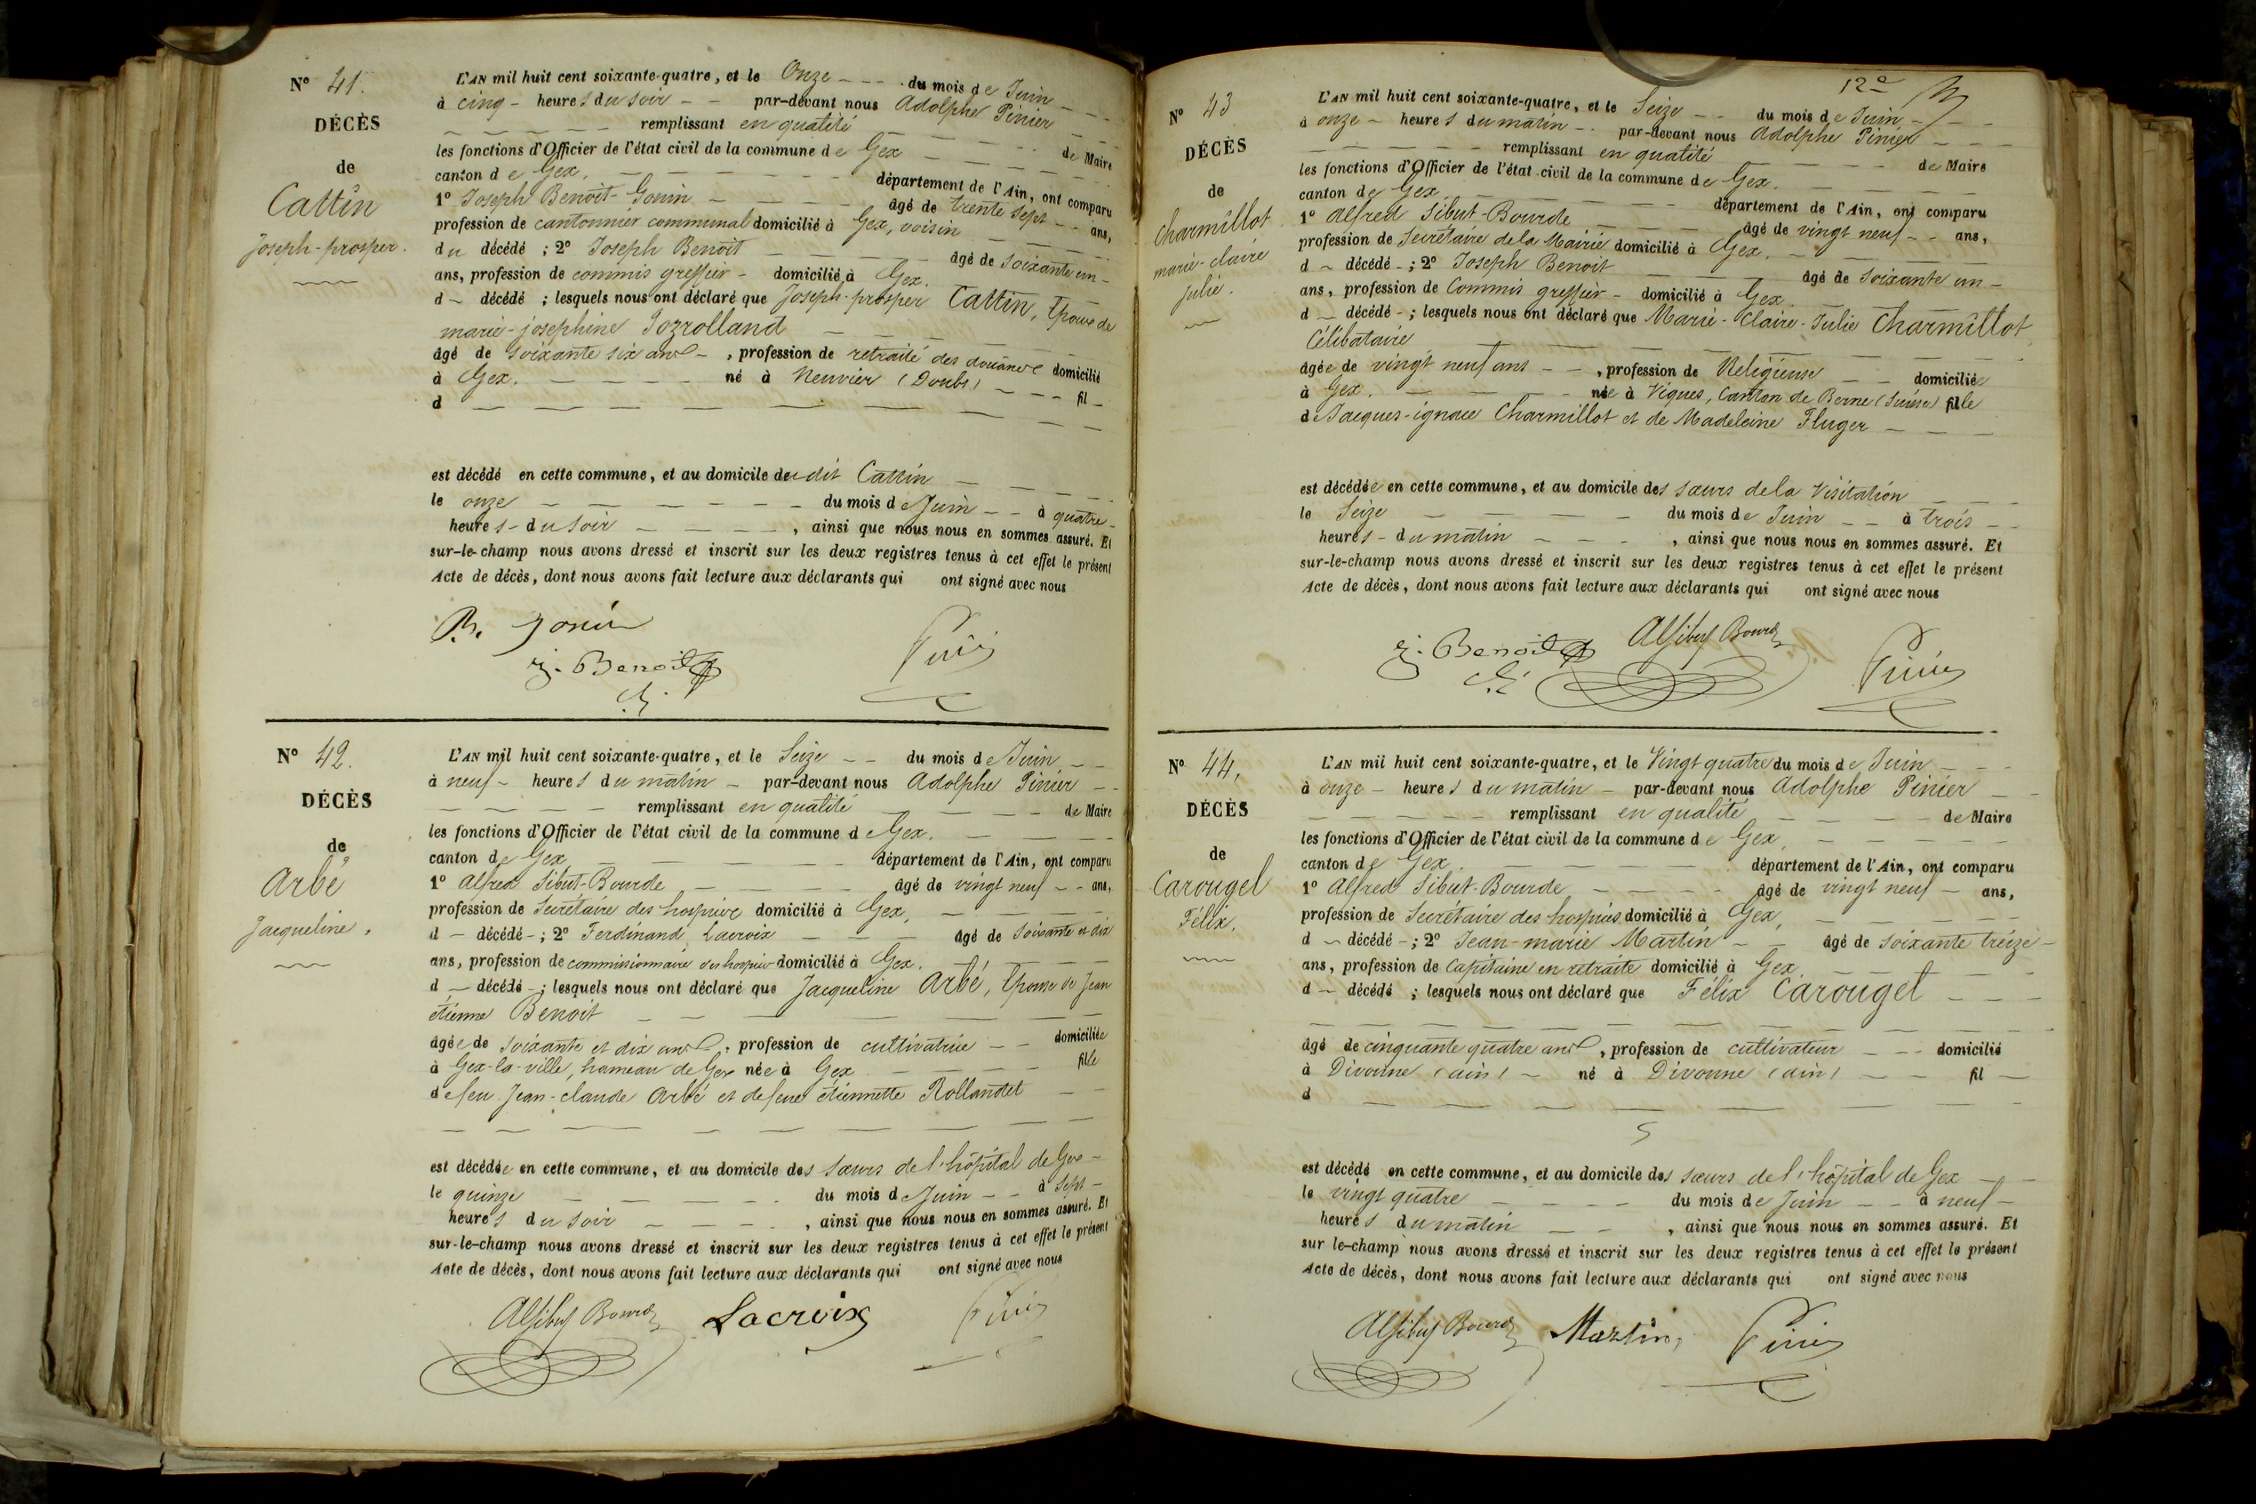 N° 41.
DÉCÈS
de
Cattin
Joseph-prosper.
L'AN mil huit cent soixante-quatre, et le Onze du mois de Juin
à cinq heures du soir par-devant nous Adolphe Pinier
remplissant en qualité de Maire
les fonctions d'Officier de l'état civil de la commune de Gex
canton de Gex, département de l'Ain, ont comparu
1° Joseph Benoit-Gonin âgé de trente sept ans,
profession de cantonnier communal domicilié à Gex, voisin
du décédé ; 2° Joseph Benoit âgé de soixante un
ans, profession de commis greffier domicilié à Gex.
d décédé ; lesquels nous ont déclaré que Joseph-prosper Cattin, Epoux de
marie-josephine Pozzolland
âgé de soixante six ans, profession de retraité des douanes domicilié
à Gex. né à Neuvier (Doubs) fil
d
est décédé en cette commune, et au domicile du dit Cattin
le onze du mois de Juin à quatre
heures du soir, ainsi que nous nous en sommes assuré. Et
sur-le-champ nous avons dressé et inscrit sur les deux registres tenus à cet effet le présent
Acte de décès, dont nous avons fait lecture aux déclarants qui ont signé avec nous
B. Gonin
j. Benoit
Pinier
N° 42.
DÉCÈS
de
Arbé
Jacqueline,
L'AN mil huit cent soixante-quatre, et le Seize du mois de Juin
à neuf heures du matin par-devant nous Adolphe Pinier
remplissant en qualité de Maire
les fonctions d'Officier de l'état civil de la commune de Gex.
canton de Gex département de l'Ain, ont comparu
1° Alfred Sibut-Bourde âgé de vingt neuf ans,
profession de Secrétaire des hospices domicilié à Gex,
d décédé ; 2° Ferdinand Lacroix âgé de soixante et dix
ans, profession de commissionnaire des hospices domicilié à Gex.
d décédé ; lesquels nous ont déclaré que Jacqueline Arbé, Epouse de Jean
étienne Benoit
âgée de soixante et dix ans, profession de cultivatrice domiciliée
à Gex-la-ville, hameau de Gex née à Gex fille
de feu Jean-claude Arbé et de feue étiennette Rollandet
est décédée en cette commune, et au domicile des sœurs de l'hôpital de Gex
le quinze du mois de Juin à sept
heures du soir, ainsi que nous nous en sommes assuré. Et
sur-le-champ nous avons dressé et inscrit sur les deux registres tenus à cet effet le présent
Acte de décès, dont nous avons fait lecture aux déclarants qui ont signé avec nous
Alf Sibut Bourde Lacroix Pinier
12e
N° 43
DÉCÈS
de
Charmillot
marie-claire
julie.
L'AN mil huit cent soixante-quatre, et le Seize du mois de Juin
à onze heures du matin par-devant nous Adolphe Pinier
remplissant en qualité de Maire
les fonctions d'Officier de l'état civil de la commune de Gex.
canton de Gex département de l'Ain, ont comparu
1° Alfred Sibut-Bourde âgé de vingt neuf ans,
profession de Secrétaire de la Mairie domicilié à Gex.
d décédé ; 2° Joseph Benoit âgé de soixante un
ans, profession de Commis greffier domicilié à Gex.
d décédé ; lesquels nous ont déclaré que Marie-Claire-Julie Charmillot
Célibataire
âgée de vingt neuf ans, profession de Religieuse domiciliée
à Gex. née à Viques, Canton de Berne (Suisse) fille
de Jacques-ignace Charmillot et de Madeleine Fluger
est décédée en cette commune, et au domicile des sœurs de la Visitation
le Seize du mois de Juin à trois
heures du matin, ainsi que nous nous en sommes assuré. Et
sur-le-champ nous avons dressé et inscrit sur les deux registres tenus à cet effet le présent
Acte de décès, dont nous avons fait lecture aux déclarants qui ont signé avec nous
j. Benoit Alf Sibut Bourde Pinier
N° 44,
DÉCÈS
de
Carougel
Félix,
L'AN mil huit cent soixante-quatre, et le Vingt quatre du mois de Juin
à onze heures du matin par-devant nous Adolphe Pinier
remplissant en qualité de Maire
les fonctions d'Officier de l'état civil de la commune de Gex,
canton de Gex. département de l'Ain, ont comparu
1° Alfred Sibut-Bourde âgé de vingt neuf ans,
profession de Secrétaire des hospices domicilié à Gex,
d décédé ; 2° Jean-marie Martin âgé de soixante treize
ans, profession de Capitaine en retraite domicilié à Gex.
d décédé ; lesquels nous ont déclaré que Félix Carougel
âgé de cinquante quatre ans, profession de cultivateur domicilié
à Divonne (ain) né à Divonne (ain) fil
d
est décédé en cette commune, et au domicile des sœurs de l'hôpital de Gex
le vingt quatre du mois de Juin à neuf
heures du matin, ainsi que nous nous en sommes assuré. Et
sur le-champ nous avons dressé et inscrit sur les deux registres tenus à cet effet le présent
Acte de décès, dont nous avons fait lecture aux déclarants qui ont signé avec nous
Alf Sibut Bourde Martin, Pinier